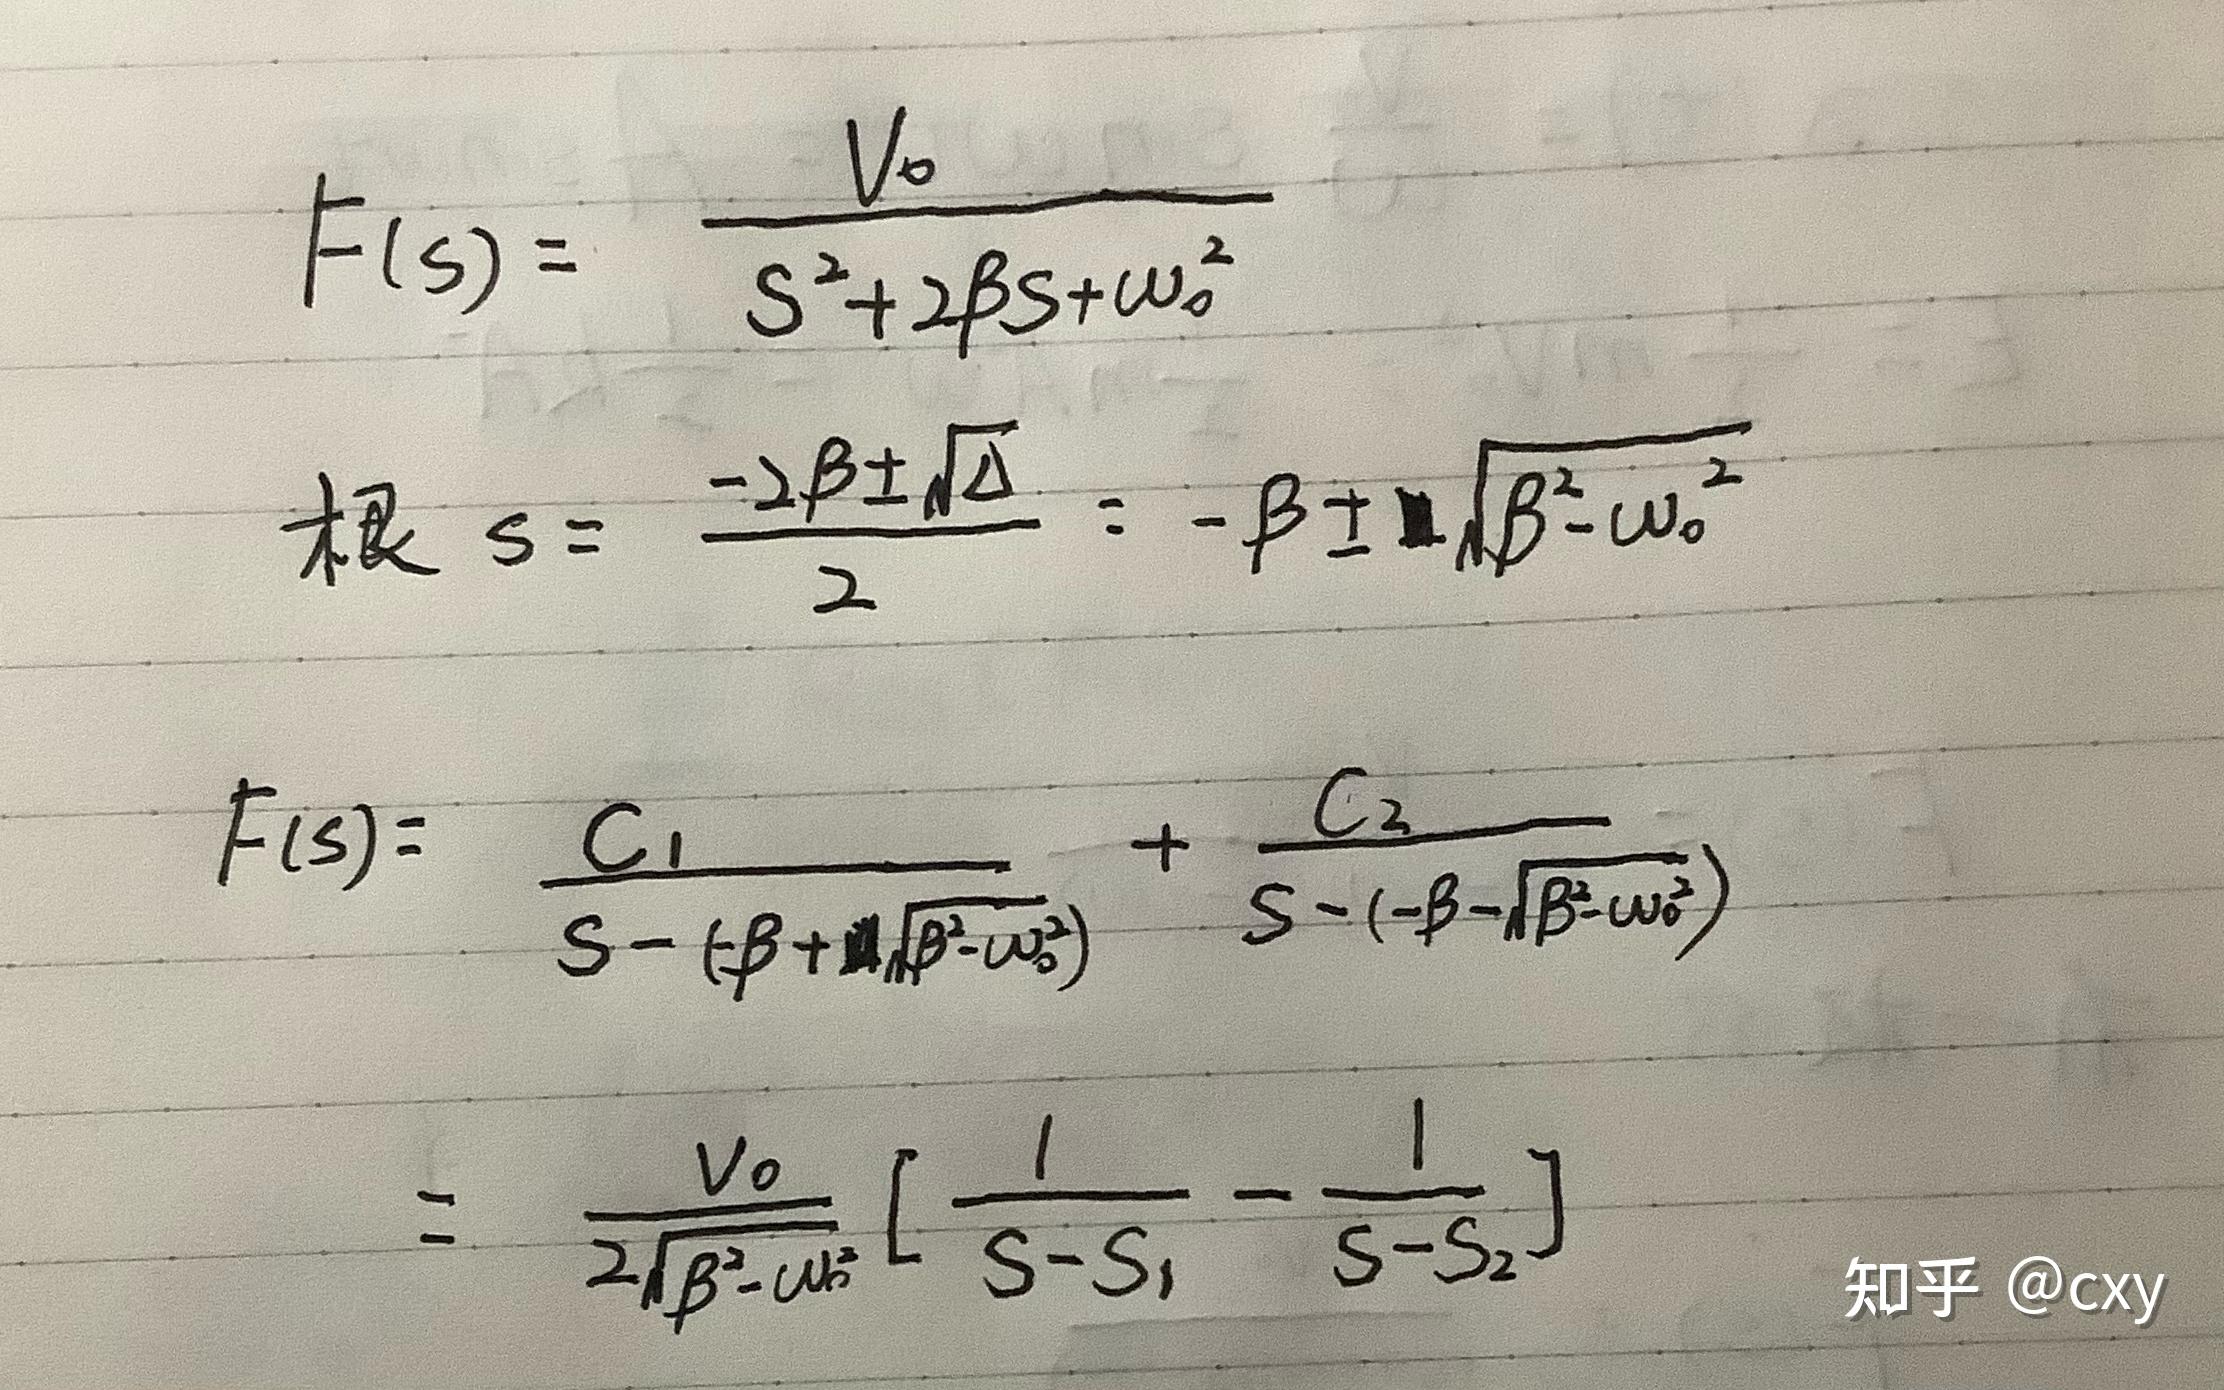 F(s) = V₀ / (S² + 2βS + ω₀²)
根 s = (-2β ± √Δ) / 2 = -β ± √(β² - ω₀²)
F(s) = C₁ / (S - (-β + √(β² - ω₀²))) + C₂ / (S - (-β - √(β² - ω₀²)))
= V₀ / (2√(β² - ω₀²)) [1 / (S - S₁) - 1 / (S - S₂)]
知乎 @cxy